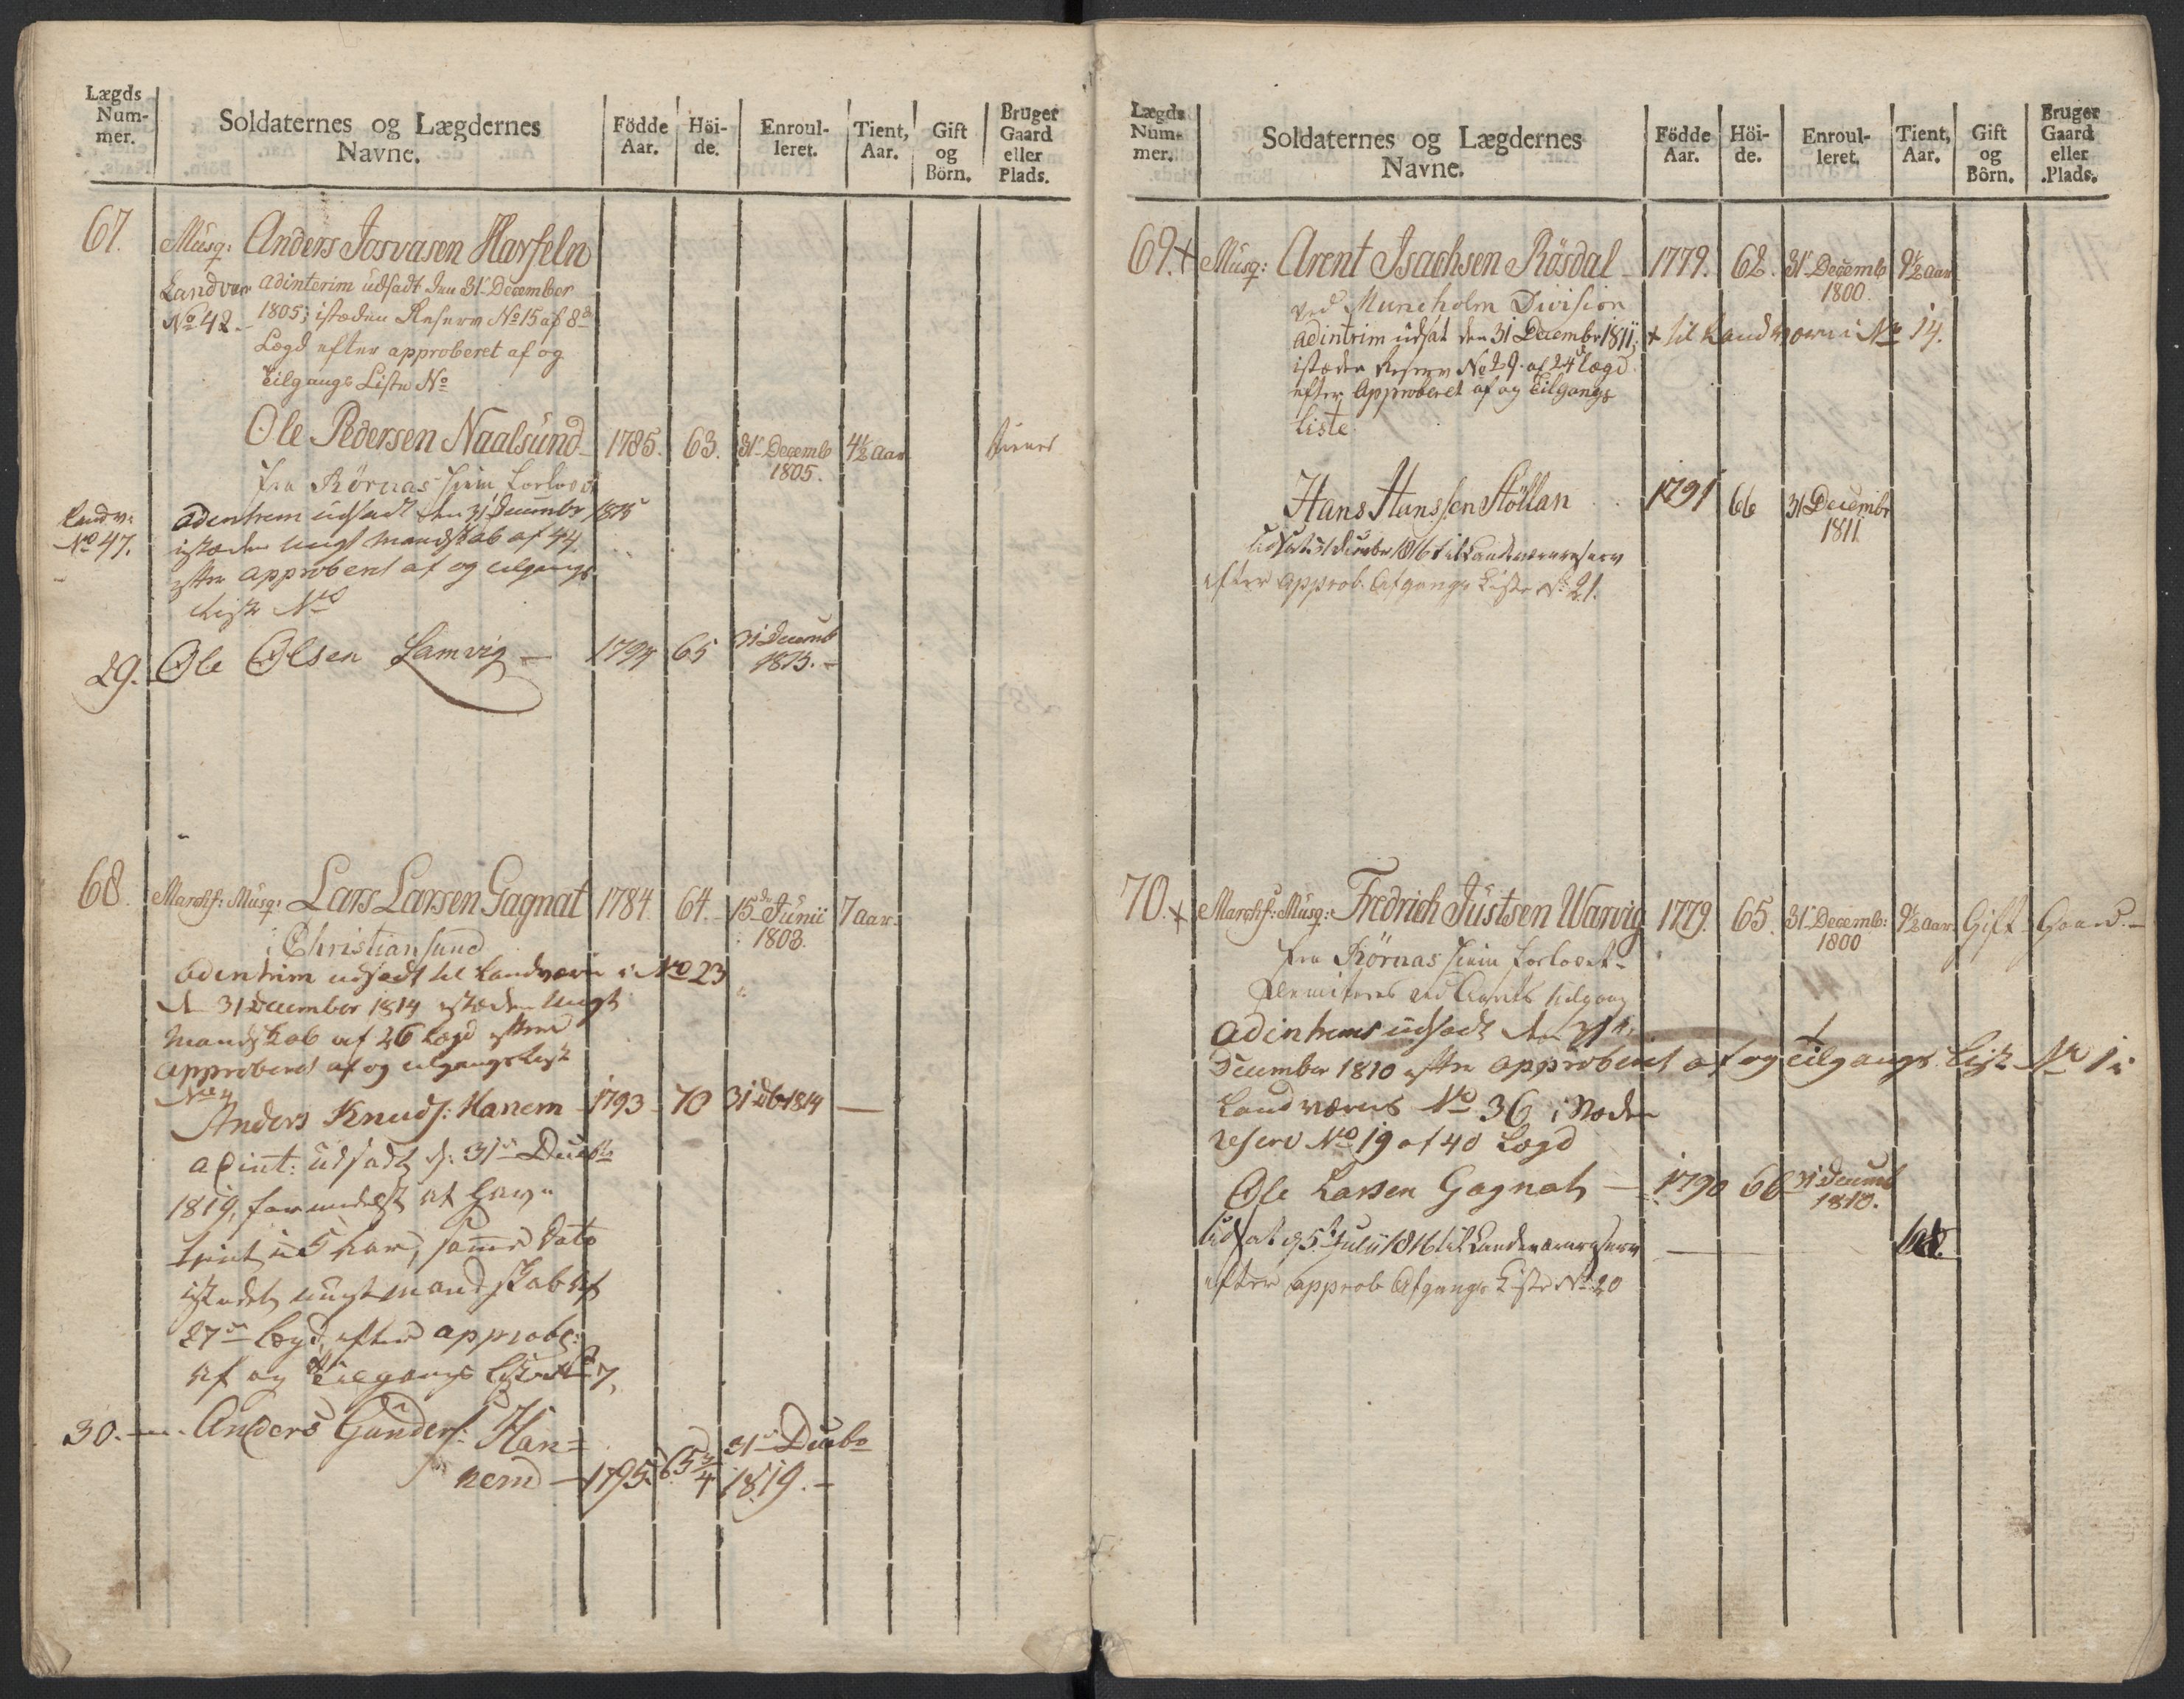 Lægds Num- mer.
Soldaternes og Lægdernes Navne.
Födde Aar.
Höi- de.
Enroul- leret.
Tient, Aar.
Gift og Börn.
Bruger Gaard eller Plads.
67. Musq: Anders Josvasen Harfeln
Landvær adinterim udsadt den 31te December
No 42. 1805; isteden Reserv No 15 af 8de
Lægd efter approberet af og
Tilgangs Liste No
Ole Pedersen Naalsund 1785. 63. 31te Decemb 1805. 4½ Aar tiener
fra Rörnas
Landv: No 47. adentrem udsadt den 31 Decembr 1815
isteden ungt Mandskab af 44
efter approberet af og tilgangs
Liste No
29. Ole Olsen Lamvig 1794 65 31 Decemb 1815.
68. Marchf: Musq: Lars Larsen Gagnat 1784. 64. 15de Junii 1803. 7 aar.
i Christiansund
adentrim udsadt til Landværn i No 23
den 31 December 1814 isteden ungt
Mandskab af 26 Lægd efter
approberet af og tilgangs Liste
No 4
Anders Knuds: Hanem 1793 70 31 Db 1814
adint: udsadt d: 31te Decbr
1819, formedelst at have
tient i 5 Aar, samme Dato
istedet ungt mandskab af
27de Lægd, efter approbe:
af og Tilgangs Liste No 7,
30. Anders Gunders: Han=
nem 1795. 65¾ 31te Decbr 1819.
Lægds Num- mer.
Soldaternes og Lægdernes Navne.
Födde Aar.
Höi- de.
Enroul- leret.
Tient, Aar.
Gift og Börn.
Bruger Gaard eller Plads.
69. + Musq: Arent Isachsen Rösdal 1779. 62. 31te Decemb 1800. 9½ Aar
ved Muncholm Division
adintrim udsat den 31 Decembr 1811; + til Landværn i No 14.
isteden Reserv No 29. af 24de Lægd
efter Approberet af og Tilgangs
Liste
Hans Hanssen Stöllan 1791 66 31 Decembr 1811
Udsat 31 Decembr 1816 til Landeværnreserv
efter approb. Afgangs Liste No 21.
70. + Marchf: Musq: Fredrich Justsen Warvig 1779. 65. 31te Decemb: 1800 9½ Aar. Gift Gaard.
fra Rörnas
adintrems udsadt den 31te
December 1810 efter approberet af og tilgangs Liste No 1 i
Landværns No 36 i Steden
reserv No 19 af 40 Lægd
Ole Larsen Gagnat 1790 66 31 Decemb 1810.
Udsat d 5te Julii 1816 til Landeværnreserv
efter approb Afgangs Liste No 20